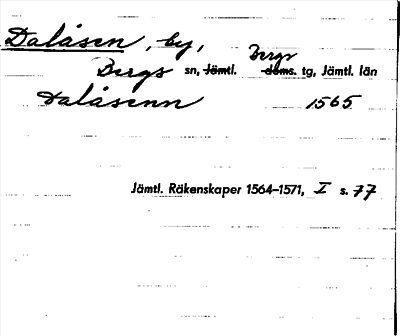 Dalåsen, by,
Bergs sn, Jämtl. Bergs doms. tg, Jämtl. län
Dalåsenn 1565
Jämtl. Räkenskaper 1564–1571, I s. 77